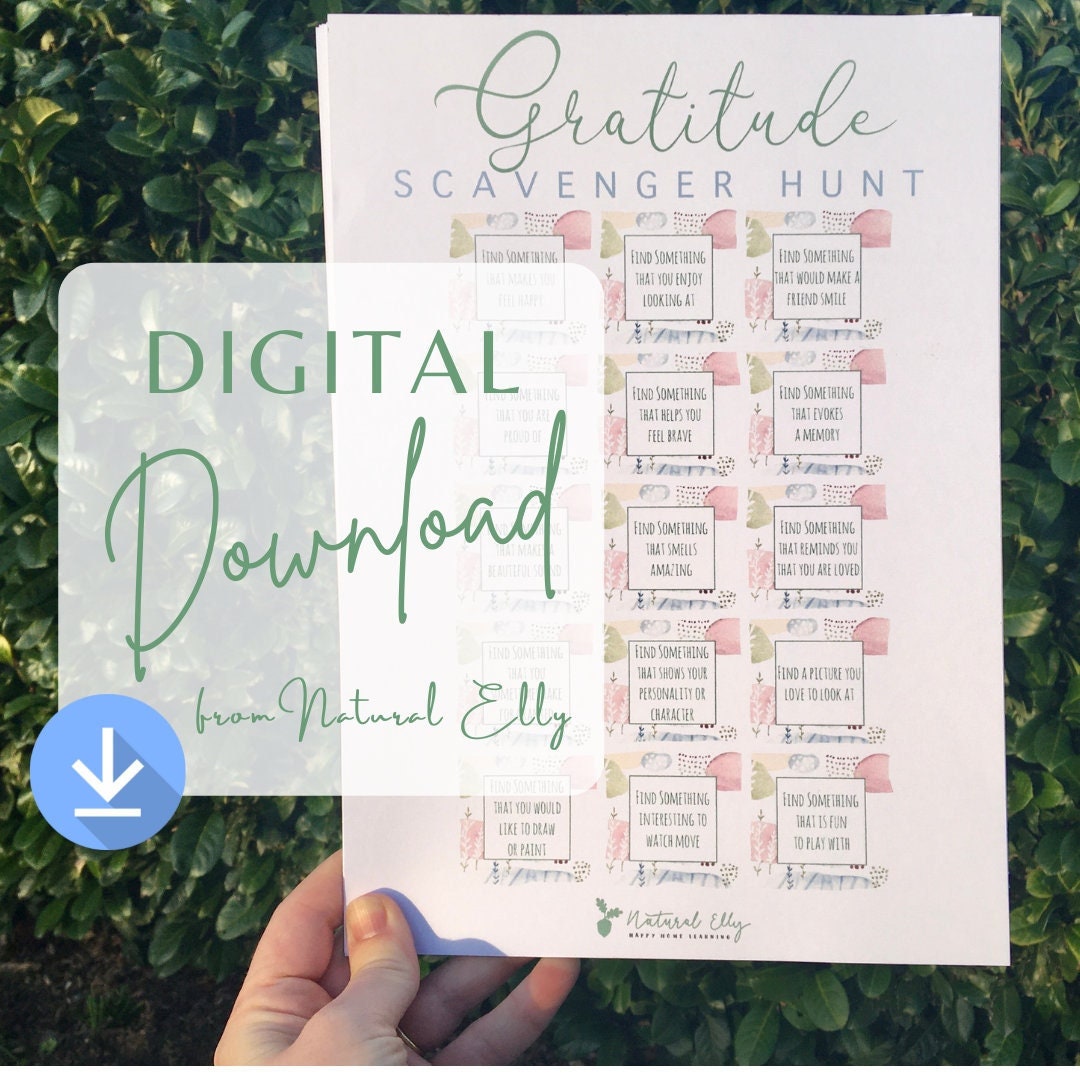 Gratitude
SCAVENGER HUNT
FIND SOMETHING
THAT MAKES YOU
FEEL HAPPY
FIND SOMETHING
THAT YOU ENJOY
LOOKING AT
FIND SOMETHING
THAT WOULD MAKE A
FRIEND SMILE
FIND SOMETHING
THAT YOU ARE
PROUD OF
FIND SOMETHING
THAT HELPS YOU
FEEL BRAVE
FIND SOMETHING
THAT EVOKES
A MEMORY
THAT MAKES A
BEAUTIFUL SOUND
FIND SOMETHING
THAT SMELLS
AMAZING
FIND SOMETHING
THAT REMINDS YOU
THAT YOU ARE LOVED
FIND SOMETHING
THAT YOU
FIND SOMETHING
THAT SHOWS YOUR
PERSONALITY OR
CHARACTER
FIND A PICTURE YOU
LOVE TO LOOK AT
FIND SOMETHING
THAT YOU WOULD
LIKE TO DRAW
OR PAINT
FIND SOMETHING
INTERESTING TO
WATCH MOVE
FIND SOMETHING
THAT IS FUN
TO PLAY WITH
Natural Elly
HAPPY HOME LEARNING
DIGITAL
Download
from Natural Elly